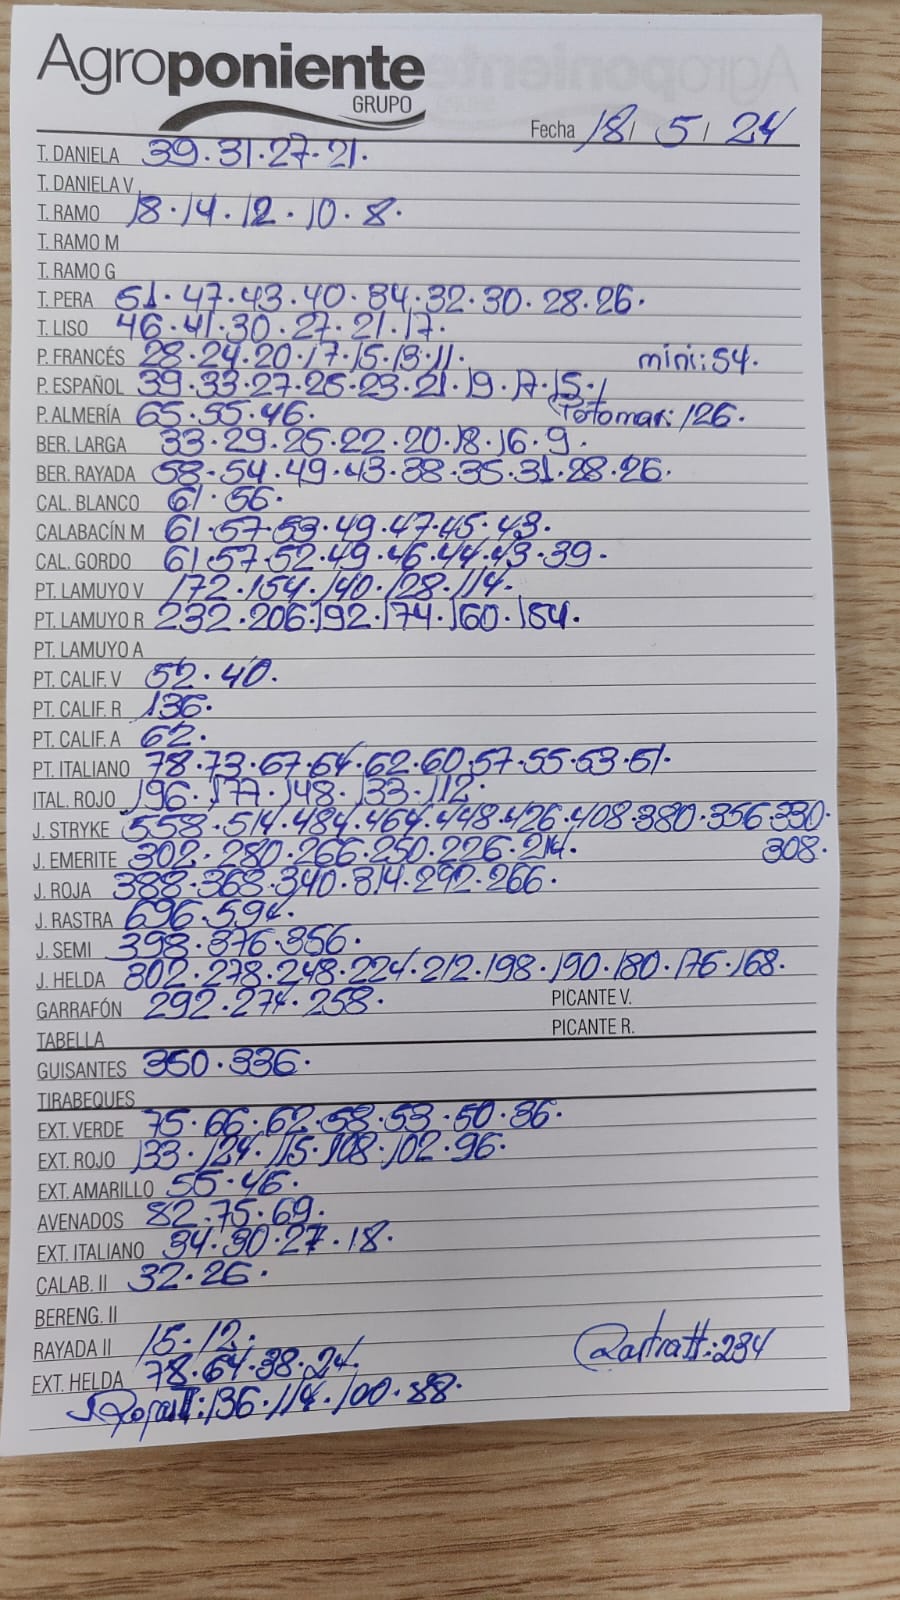 Agroponiente
GRUPO
Fecha 18/ 5/ 24
T. DANIELA 39.31.27.21.
T. DANIELA V
T. RAMO 18.14.12.10.8.
T. RAMO M
T. RAMO G
T. PERA 51.47.43.40.34.32.30.28.26.
T. LISO 46.41.30.27.21.17.
P. FRANCÉS 28.24.20.17.15.13.11. mini:54.
P. ESPAÑOL 39.33.27.25.23.21.19.17.15.
P. ALMERÍA 65.55.46. Potomar:126.
BER. LARGA 33.29.25.22.20.18.16.9.
BER. RAYADA 58.54.49.43.38.35.31.28.26.
CAL. BLANCO 61.56.
CALABACÍN M 61.57.53.49.47.45.43.
CAL. GORDO 61.57.52.49.46.44.43.39.
PT. LAMUYO V 172.154.140.128.114.
PT. LAMUYO R 232.206.192.174.160.154.
PT. LAMUYO A
PT. CALIF. V 52.40.
PT. CALIF. R 136.
PT. CALIF. A 62.
PT. ITALIANO 78.73.67.64.62.60.57.55.53.51.
ITAL. ROJO 196.177.148.133.112.
J. STRYKE 558.514.484.464.448.426.408.380.356.330.
J. EMERITE 302.280.266.250.226.214. 308.
J. ROJA 388.368.340.314.292.266.
J. RASTRA 696.594.
J. SEMI 398.376.356.
J. HELDA 302.278.248.224.212.198.190.180.176.168.
GARRAFÓN 292.274.258. PICANTE V.
TABELLA PICANTE R.
GUISANTES 350.336.
TIRABEQUES
EXT. VERDE 75.66.62.58.53.50.36.
EXT. ROJO 133.124.115.108.102.96.
EXT. AMARILLO 55.46.
AVENADOS 82.75.69.
EXT. ITALIANO 34.30.27.18.
CALAB. II 32.26.
BERENG. II
RAYADA II 15.12. Rastra II:234
EXT. HELDA 78.64.38.24.
J Roja II:136.114.100.88.